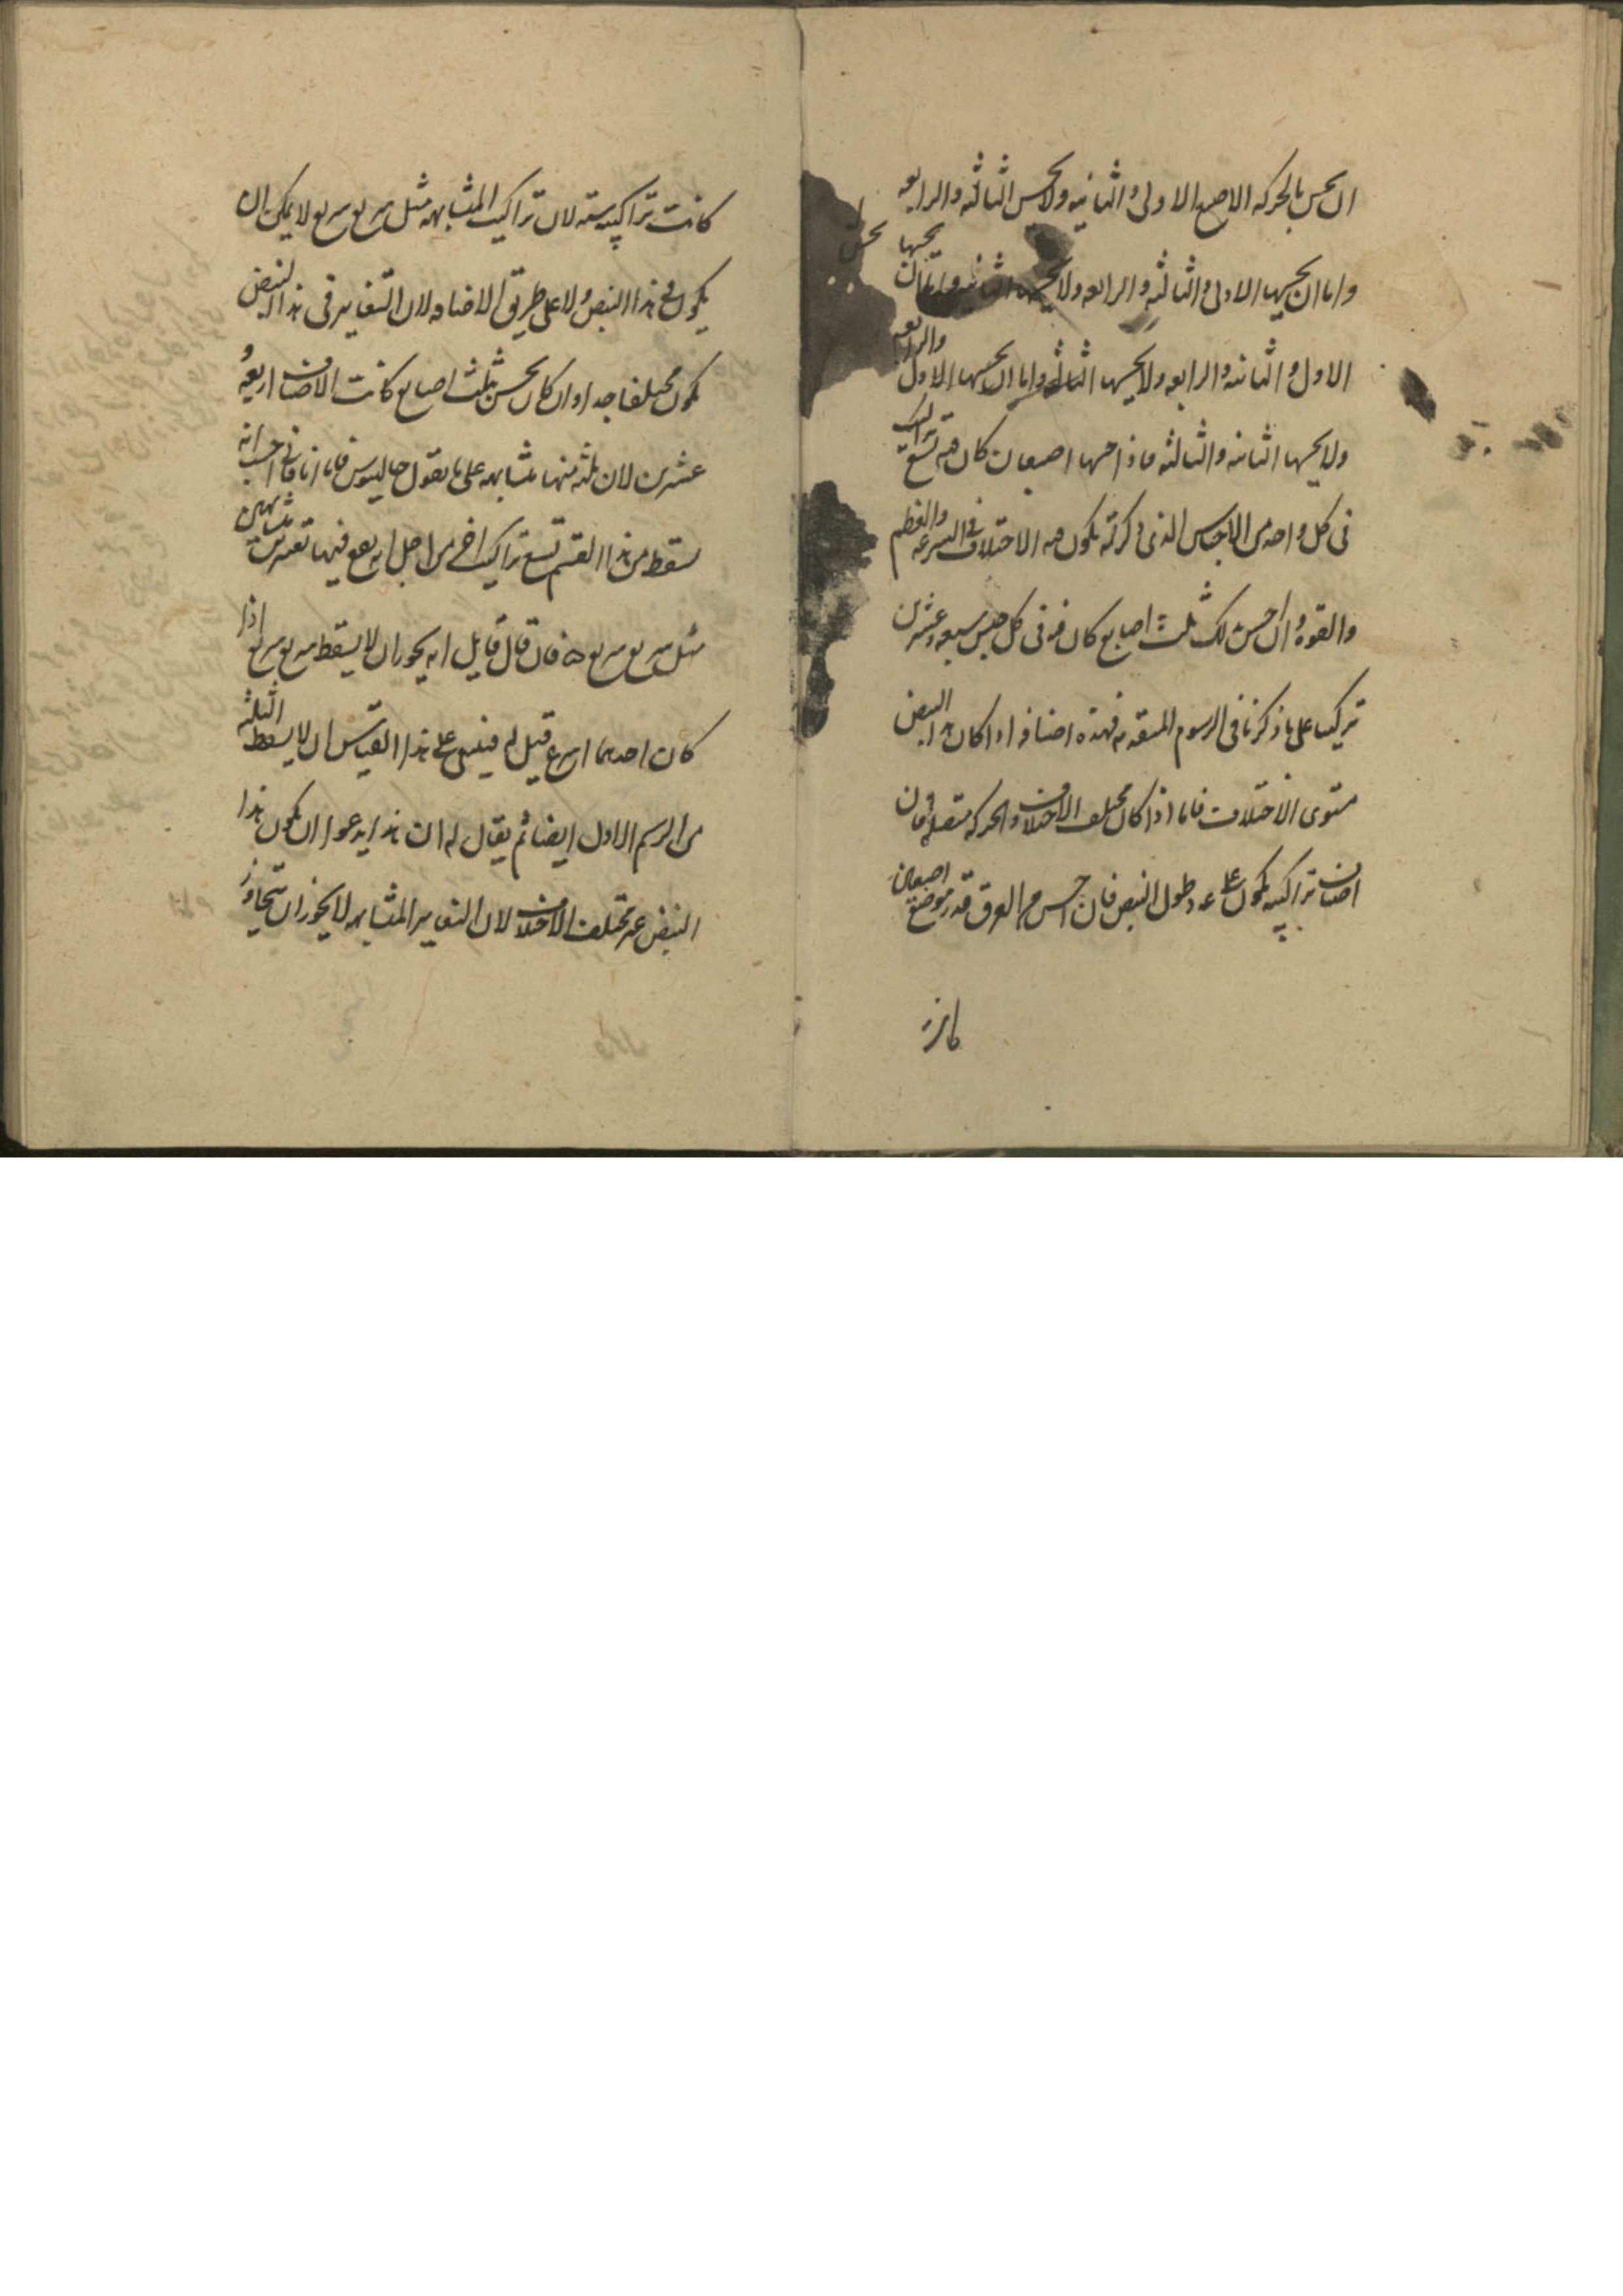 ان يحس بالحركه الاصبع الاولى والثانيه ولا يحس الثالثه والرابعه
واما ان يحسها الاولى والثالثه والرابعه ولا يحسها الثانيه واما ان يحسها
الاولى والثانيه والرابعه ولا يحسها الثالثه واما ان يحسها الاولى والرابعه
ولا يحسها الثانيه والثالثه فاذا حسها اصبعان كان فيه تسع تراكيب
فى كل واحد من الاجناس الذى ذكرته يكون فيه الاختلاف فى السرعه والعظم
والقوه وان احس تلك ثلث اصابع كان فيه فى كل جنس سبعه وعشرين
تركيب على ما ذكرنا فى الرسوم المتقدمه فهذه اصنافه اذا كان هذا النبض
مستوى الاختلاف فاما اذا كان مختلف الاختلاف والحركه متصله فان
اصناف تراكيبه يكون على عدد طول النبض فان احس من العرق قدر موضع اصبعين
كانت تراكيبه سته لان تراكيب المتشابهه مثل سريع سريع لا يمكن ان
يكون فى هذا النبض ولا على طريق الاضافه لان التغاير فى هذا النبض
يكون مختلفا جدا وان كان يحس بثلث اصابع كانت الاصناف اربعه و
عشرين لان ثلثه منها متشابهه على ما يقول جالينوس فاما انا فانى احسب انه
يسقط من هذا القسم تسع تراكيب اخر من اجل انه يقع فيها نغمتين متشابهين
مثل سريع سريع ه فان قال قايل انه يجوز ان لا يسقط سريع سريع اذا
كان احدهما اسرع قيل له فينبغى على هذا القياس ان لا يسقط الثلثه
من الرسم الاول ايضا ثم يقال له ان هذا يدعوا ان يكون هذا
النبض غير مختلف الاختلاف لان النغاير المتشابهه لا يجوز ان تتجاوز